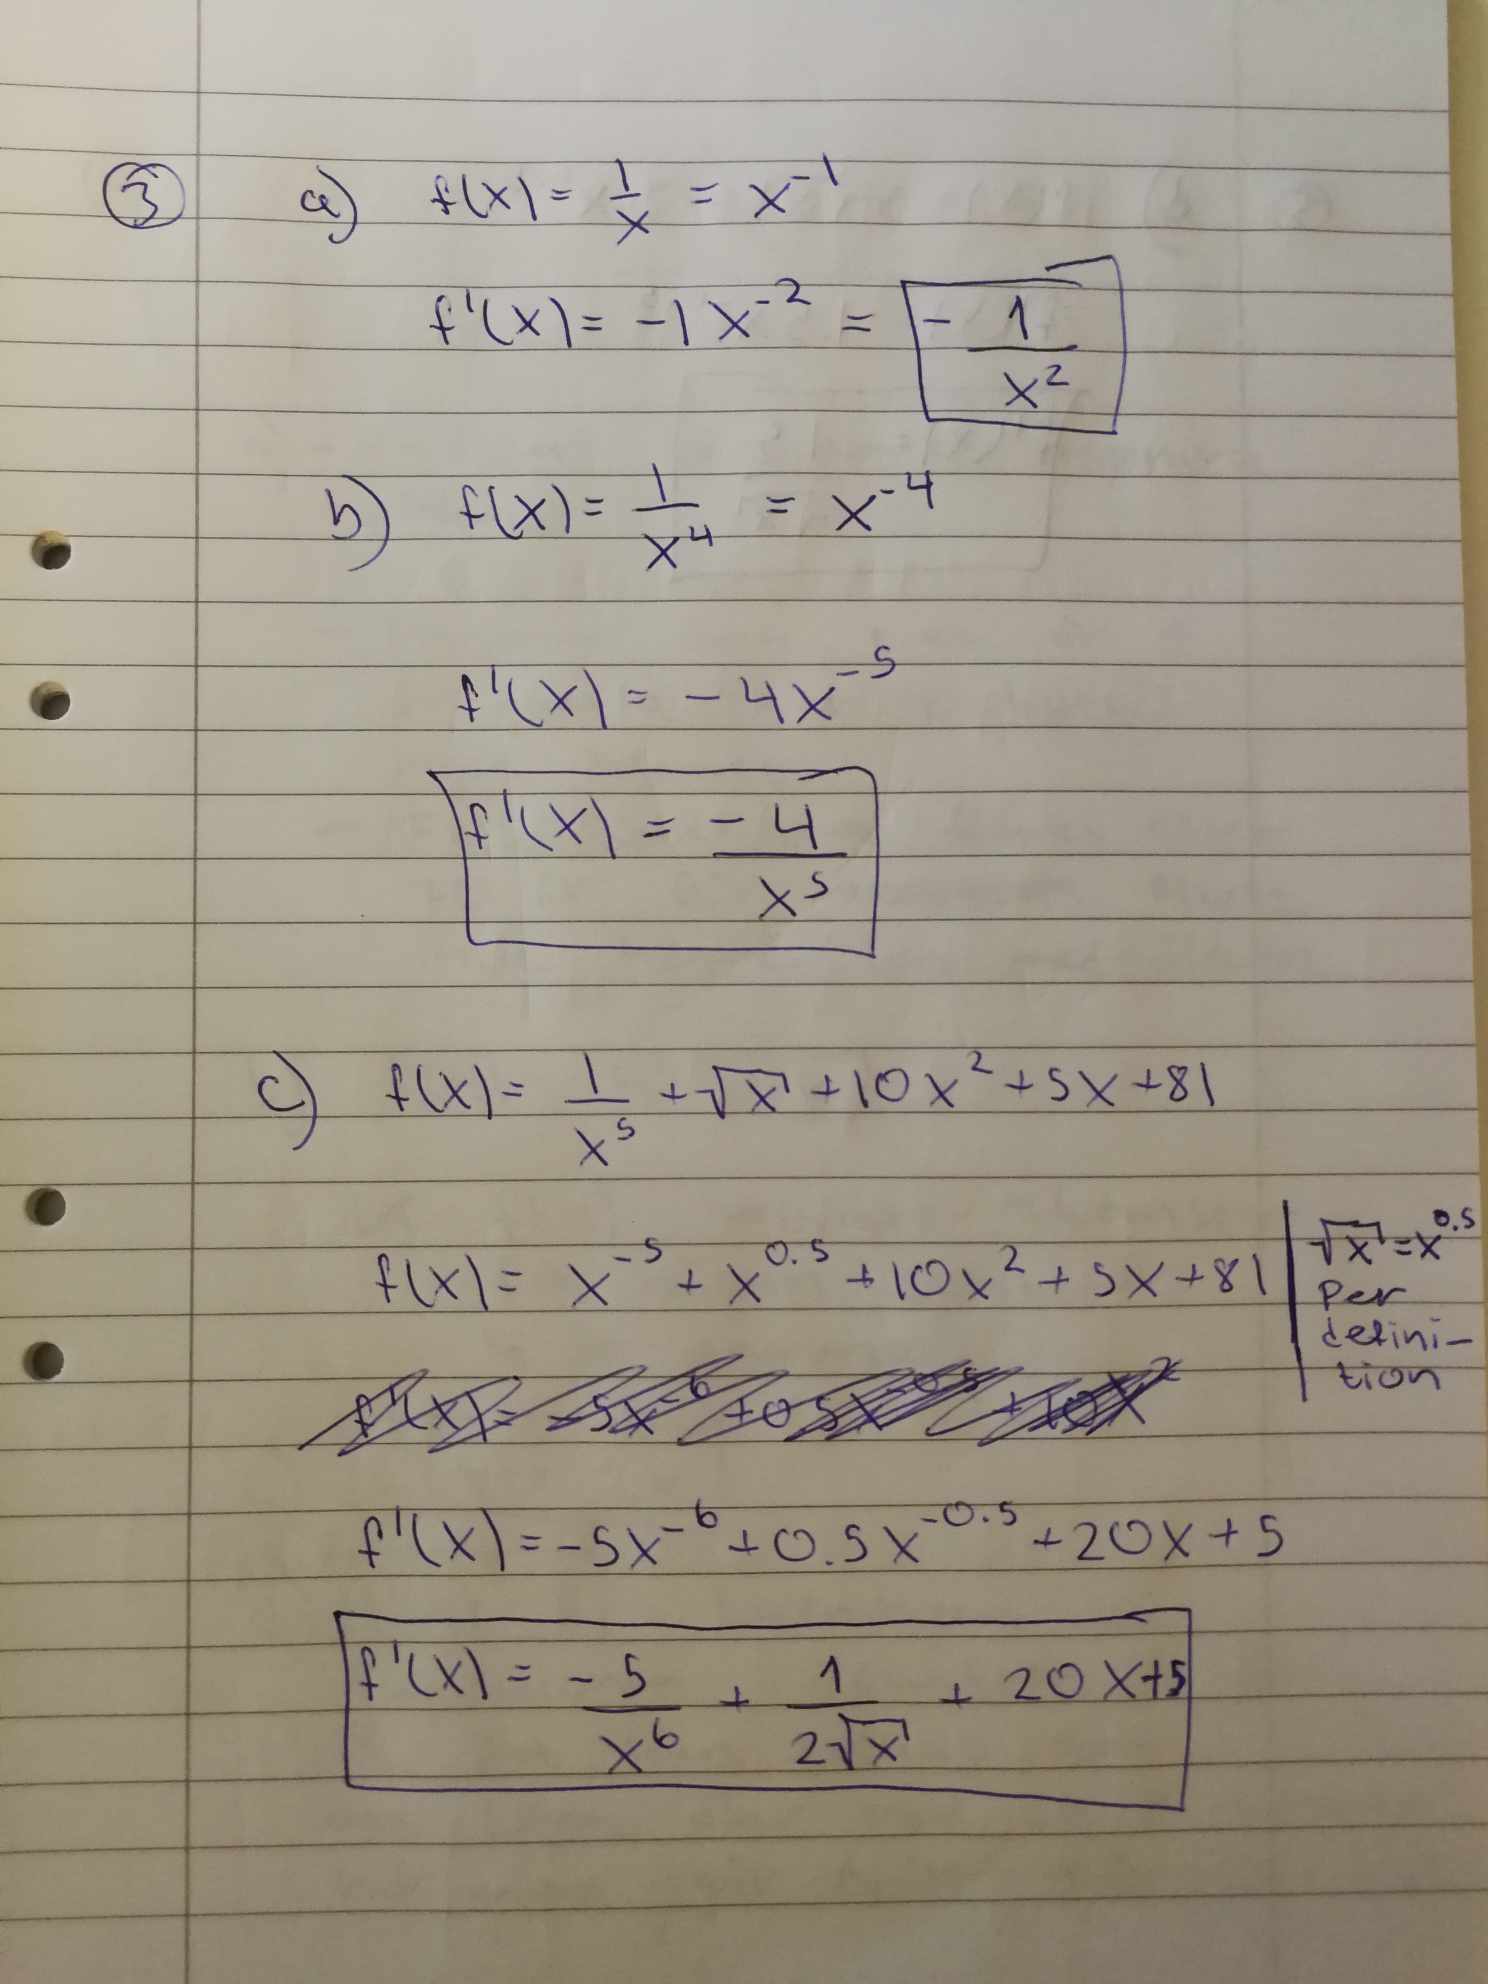 3 a) f(x) = 1/x = x^-1
f'(x) = -1x^-2 = - 1/x^2
b) f(x) = 1/x^4 = x^-4
f'(x) = -4x^-5
f'(x) = -4/x^5
c) f(x) = 1/x^5 + √x + 10x^2 + 5x + 81
f(x) = x^-5 + x^0.5 + 10x^2 + 5x + 81
√x = x^0.5
Per
defini-
tion
f'(x) = -5x^-6 + 0.5x^-0.5 + 10x^2
f'(x) = -5x^-6 + 0.5x^-0.5 + 20x + 5
f'(x) = -5/x^6 + 1/2√x + 20x+5